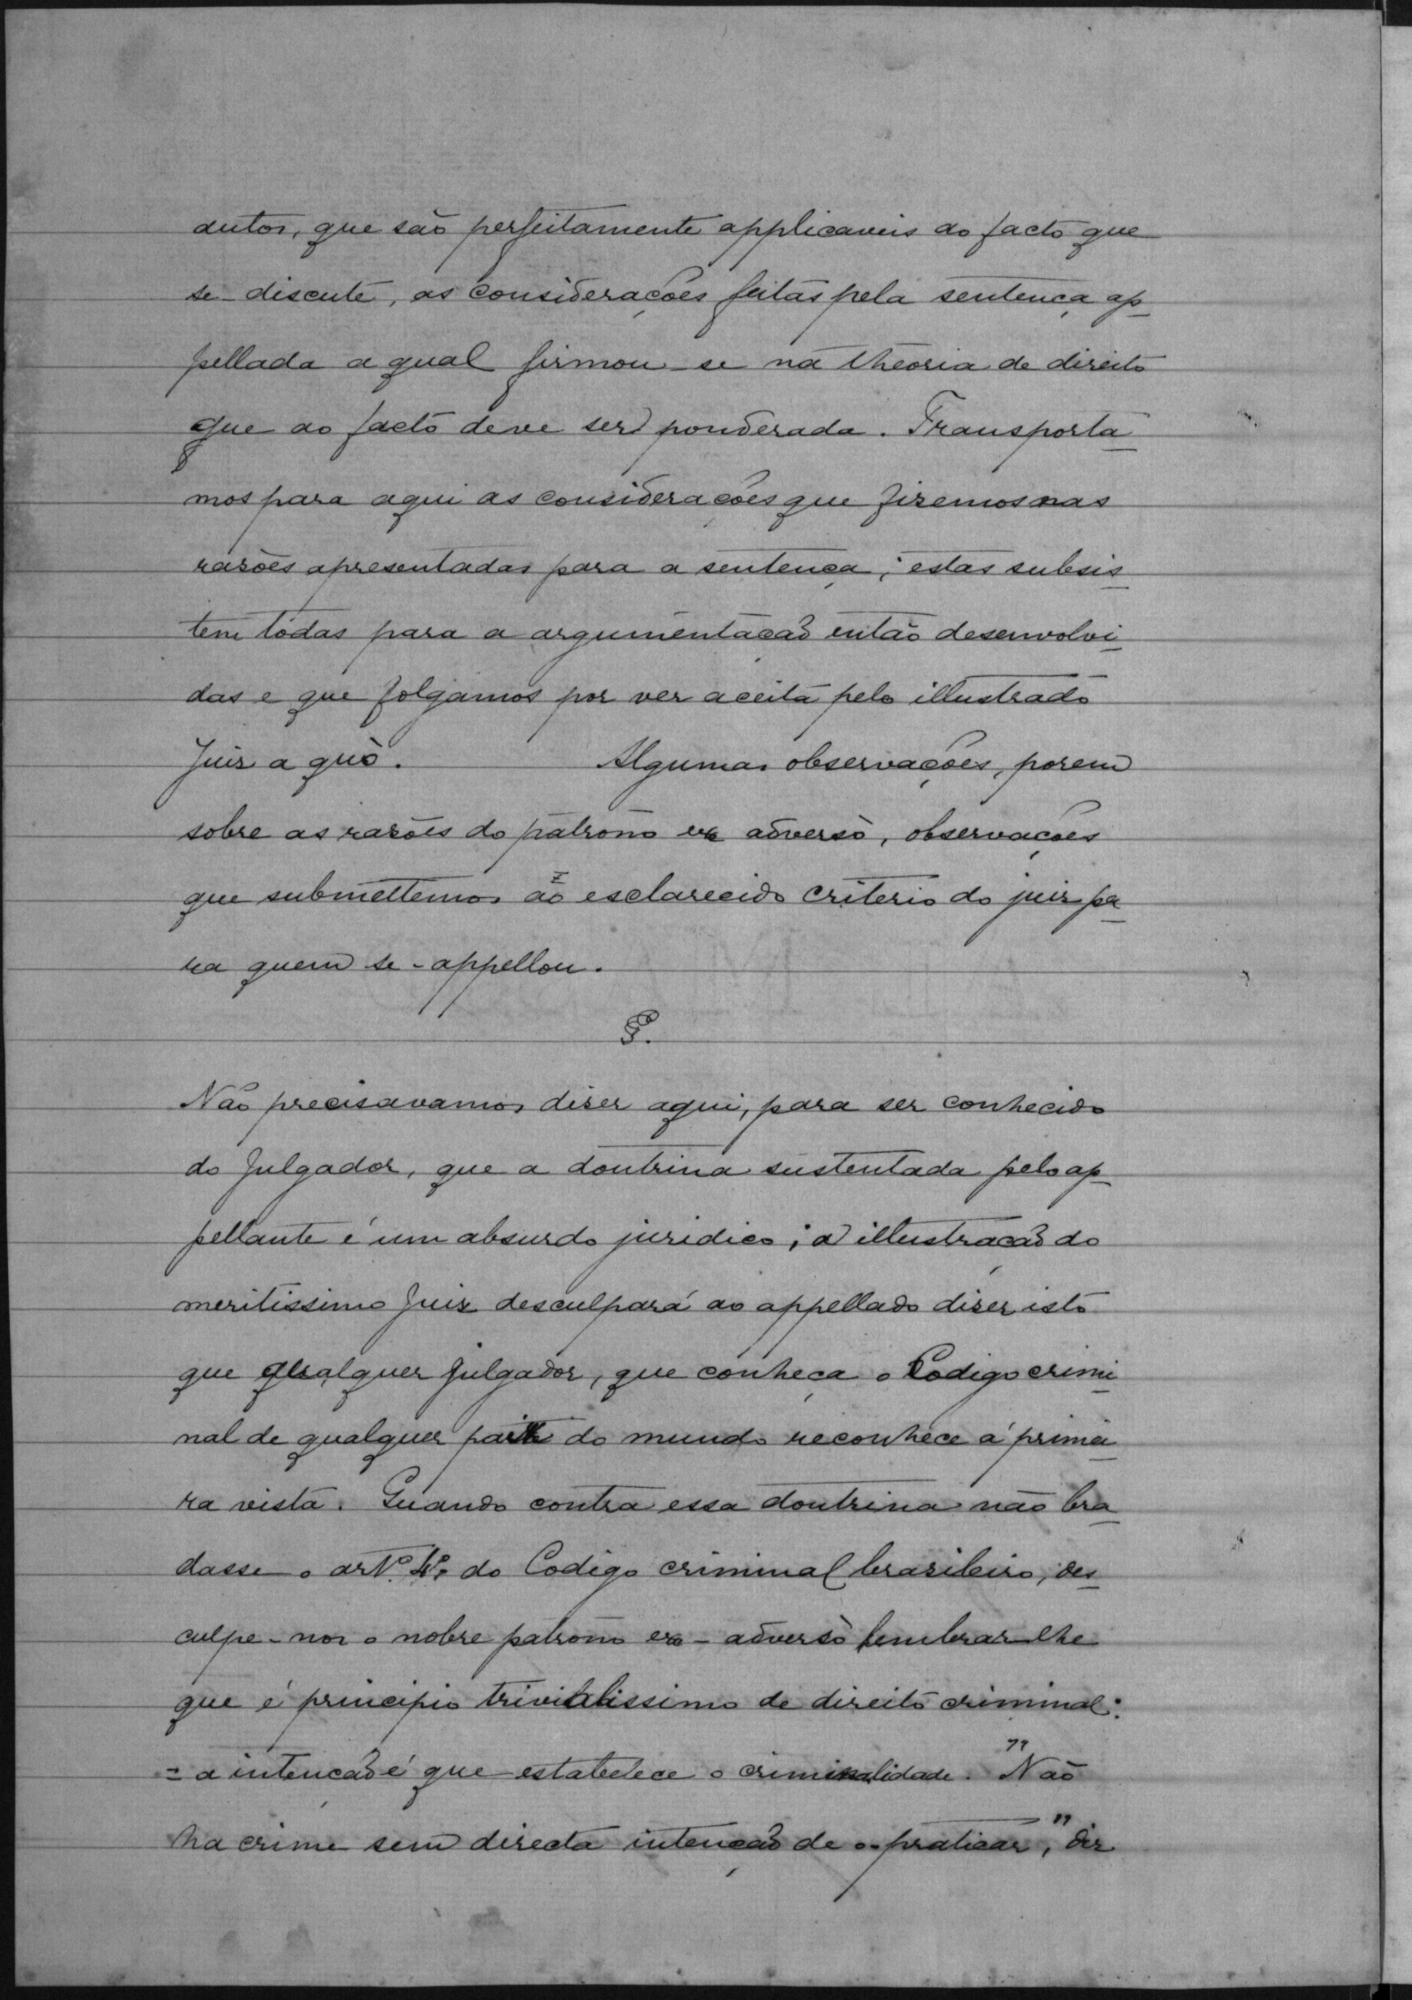 autos, que são perfeitamente applicaveis ao facto que
se-discute, as considerações feitas pela sentença ap-
pellada a qual firmou-se na theoria de direito
que ao facto deve ser ponderada. Transporta-
mos para aqui as considerações que fizemos nas
razões apresentadas para a sentença; estas subsis-
tem todas para a argumentação então desenvolvi-
das e que folgamos por ver aceita pelo illustrado
Juiz a quò. Algumas observações, porem
sobre as razões do patrono ex adversò, observações
que submettemos ao esclarecido criterio do juiz pa-
ra quem se-appellou.
§.
Não precisavamos dizer aqui, para ser conhecido
do Julgador, que a doutrina sustentada pelo ap-
pellante é um absurdo juridico; a illustração do
meritissimo Juiz desculpará ao appellado dizer isto
que qualquer julgador, que conheça o Codigo crimi-
nal de qualquer parte do mundo reconhece á primei-
ra vista. Quando contra essa doutrina não bra-
dasse o artº. 4º. do Codigo criminal brasileiro, des-
culpe-nos o nobre patrono ex-adversò lembrar-lhe
que é principio trivialissimo de direito criminal:
= a intenção é que estabelece o criminalidade. "Não
ha crime sem directa intenção de o-praticar," diz